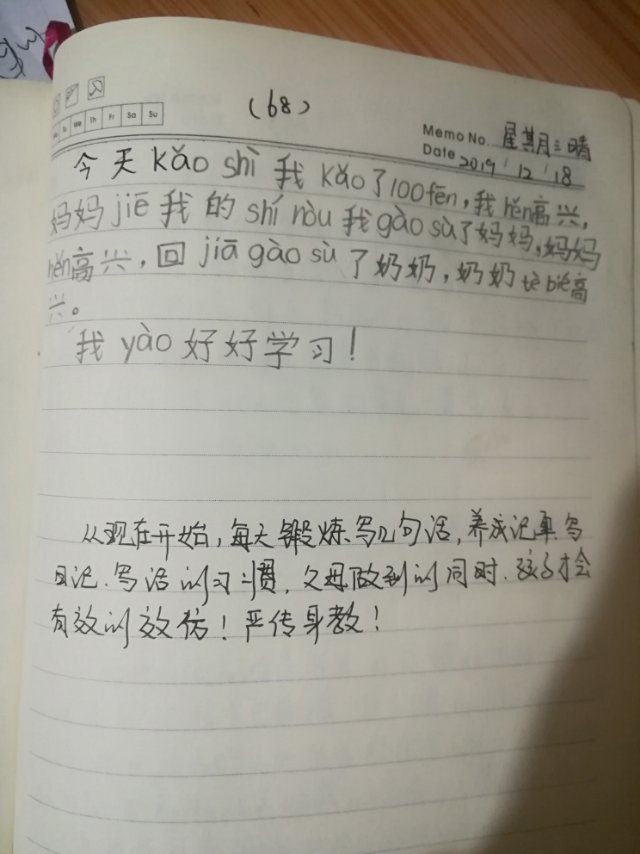 (68)
Tu We Th Fr Sa Su
Memo No. 星期三晴
Date 2019 ' 12 ' 18
今天kǎo shì我kǎo了100fēn,我hěn高兴,
妈妈jiē我的shí hòu我gào sù了妈妈,妈妈
hěn高兴,回jiā gào sù了奶奶,奶奶tè bié高
兴。
我yào好好学习!
从现在开始,每天锻炼写几句话,养成记事写
日记.写话的习惯,父母做到的同时.孩子才会
有效的效仿!严传身教!